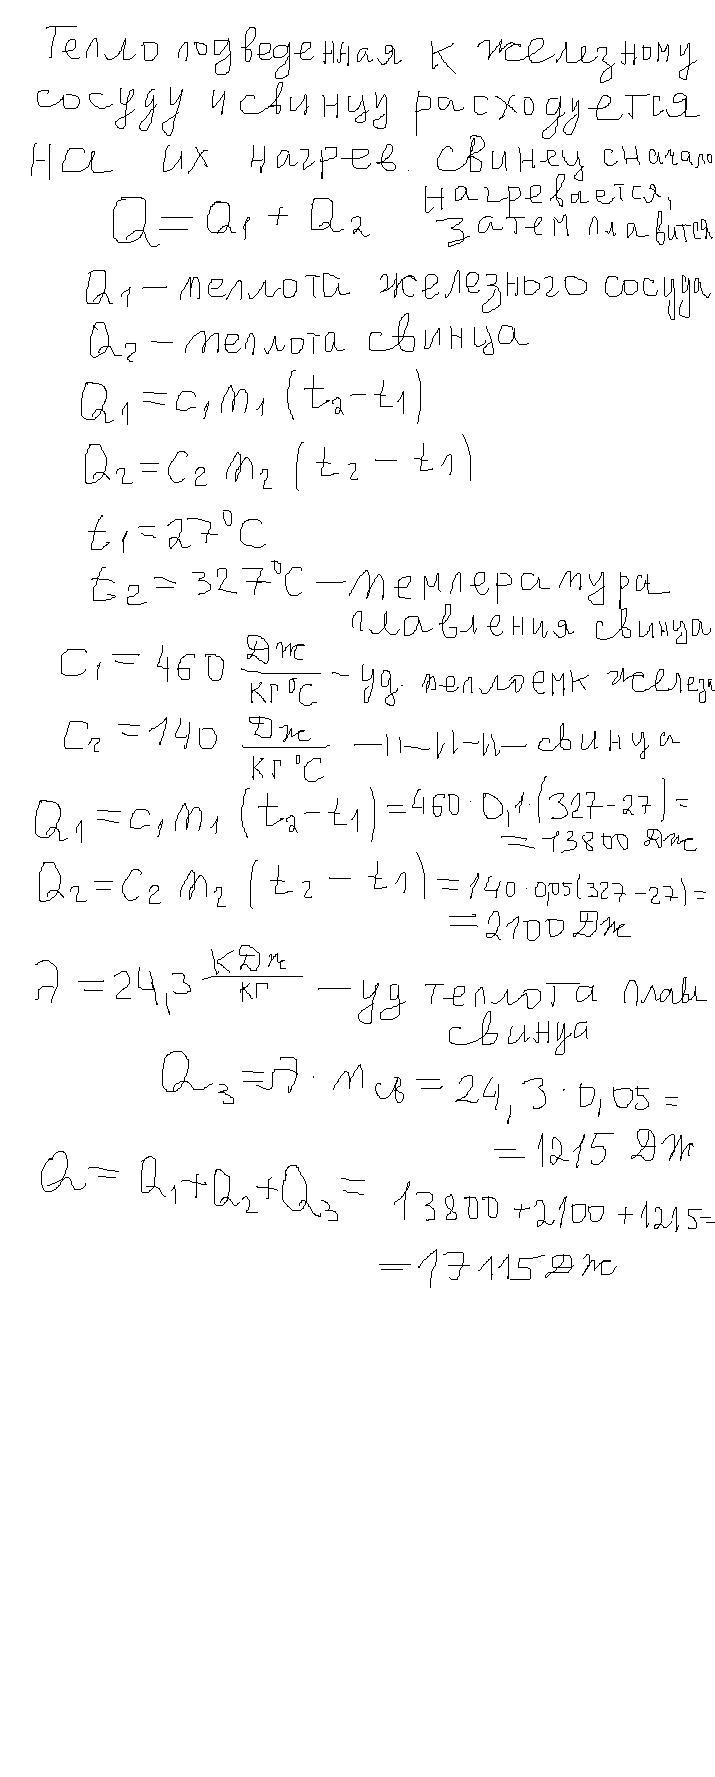 Тепло подведенная к железному
сосуду и свинцу расходуется
на их нагрев. свинец сначало
нагревается,
затем плавится
Q = Q₁ + Q₂
Q₁ – теплота железного сосуда
Q₂ – теплота свинца
Q₁ = c₁ m₁ (t₂ – t₁)
Q₂ = c₂ m₂ (t₂ – t₁)
t₁ = 27°C
t₂ = 327°C – температура
плавления свинца
c₁ = 460 Дж/кг°C – уд. теплоемк железа
c₂ = 140 Дж/кг°C –"–"–"– свинца
Q₁ = c₁ m₁ (t₂ – t₁) = 460 · 0,1 · (327 – 27) =
= 13800 Дж
Q₂ = c₂ m₂ (t₂ – t₁) = 140 · 0,05 (327 – 27) =
= 2100 Дж
λ = 24,3 кДж/кг – уд теплота плавл
свинца
Q₃ = λ · m св = 24,3 · 0,05 =
= 1215 Дж
Q = Q₁ + Q₂ + Q₃ = 13800 + 2100 + 1215 =
= 17115 Дж